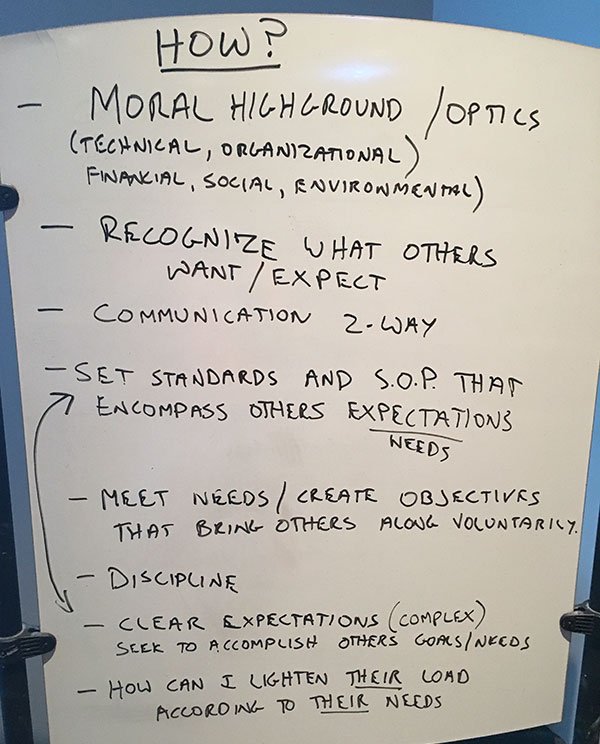 HOW?
- MORAL HIGHGROUND / OPTICS
(TECHNICAL, ORGANIZATIONAL)
FINANCIAL, SOCIAL, ENVIRONMENTAL)
- RECOGNIZE WHAT OTHERS
WANT / EXPECT
- COMMUNICATION 2-WAY
- SET STANDARDS AND S.O.P. THAT
ENCOMPASS OTHERS EXPECTATIONS
NEEDS
- MEET NEEDS / CREATE OBJECTIVES
THAT BRING OTHERS ALONG VOLUNTARILY.
- DISCIPLINE
- CLEAR EXPECTATIONS (COMPLEX)
SEEK TO ACCOMPLISH OTHERS GOALS/NEEDS
- HOW CAN I LIGHTEN THEIR LOAD
ACCORDING TO THEIR NEEDS